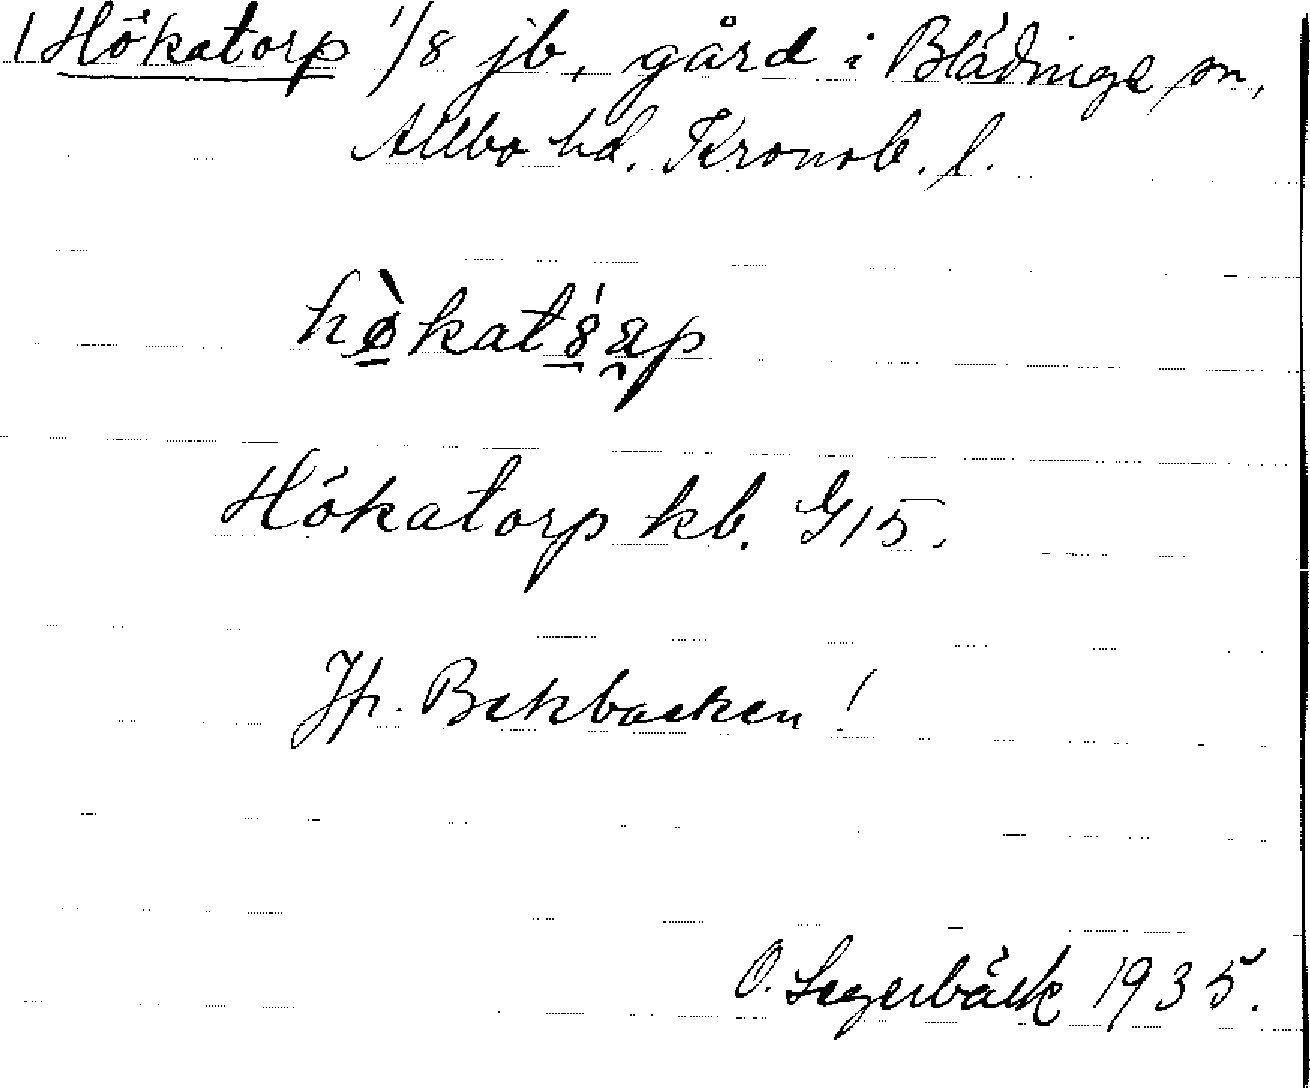 1 Hökatorp 1/8 jb, gård i Blädinge sn,
Allbo hd. Kronob. l.
Hökatorp kb. G 15.
Jfr. Bekbacken!
O. Segerbäck 1935.